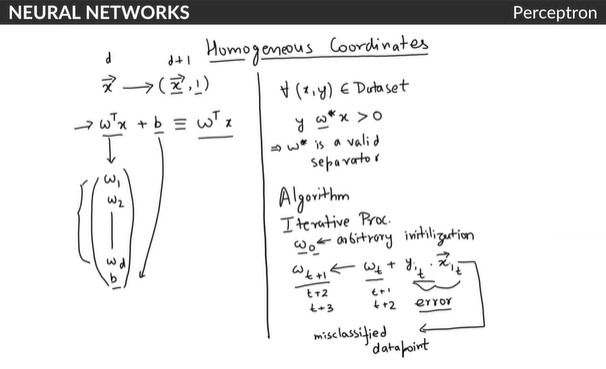 NEURAL NETWORKS
Perceptron
Homogeneous Coordinates
d d+1
x⃗ → (x⃗, 1)
→ ωᵀx + b ≡ ωᵀx
ω₁
ω₂
ω_d
b
∀ (x, y) ∈ Dataset
y ω* x > 0
⇒ ω* is a valid
separator
Algorithm
Iterative Proc.
ω₀ ← arbitrory initilization
ω_{t+1} ← ω_t + y_{i_t} · x⃗_{i_t}
t+2 t+1
t+3 t+2 error
misclassified
datapoint